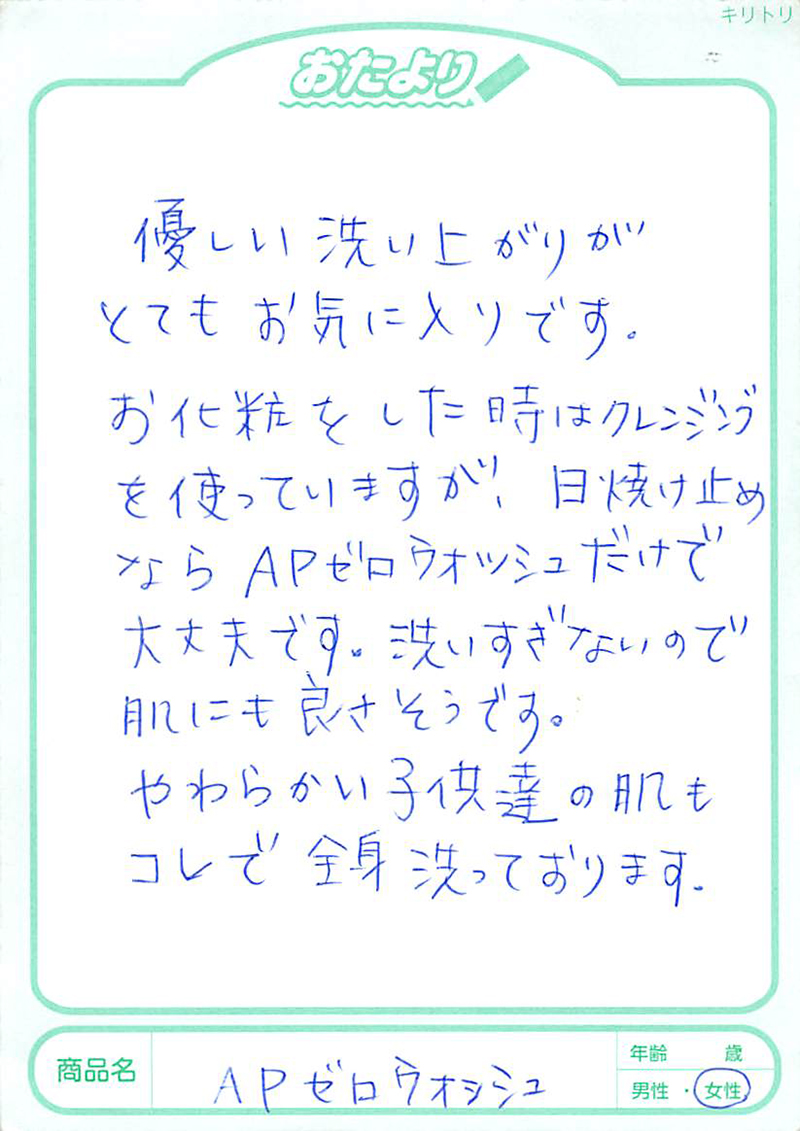 キリトリ
おたより
優しい洗い上がりが
とてもお気に入りです。
お化粧をした時はクレンジング
を使っていますが、日焼け止め
なら APゼロウォッシュだけで
大丈夫です。洗いすぎないので
肌にも良さそうです。
やわらかい子供達の肌も
コレで全身洗っております。
商品名 APゼロウォッシュ
年齢 歳
男性・女性